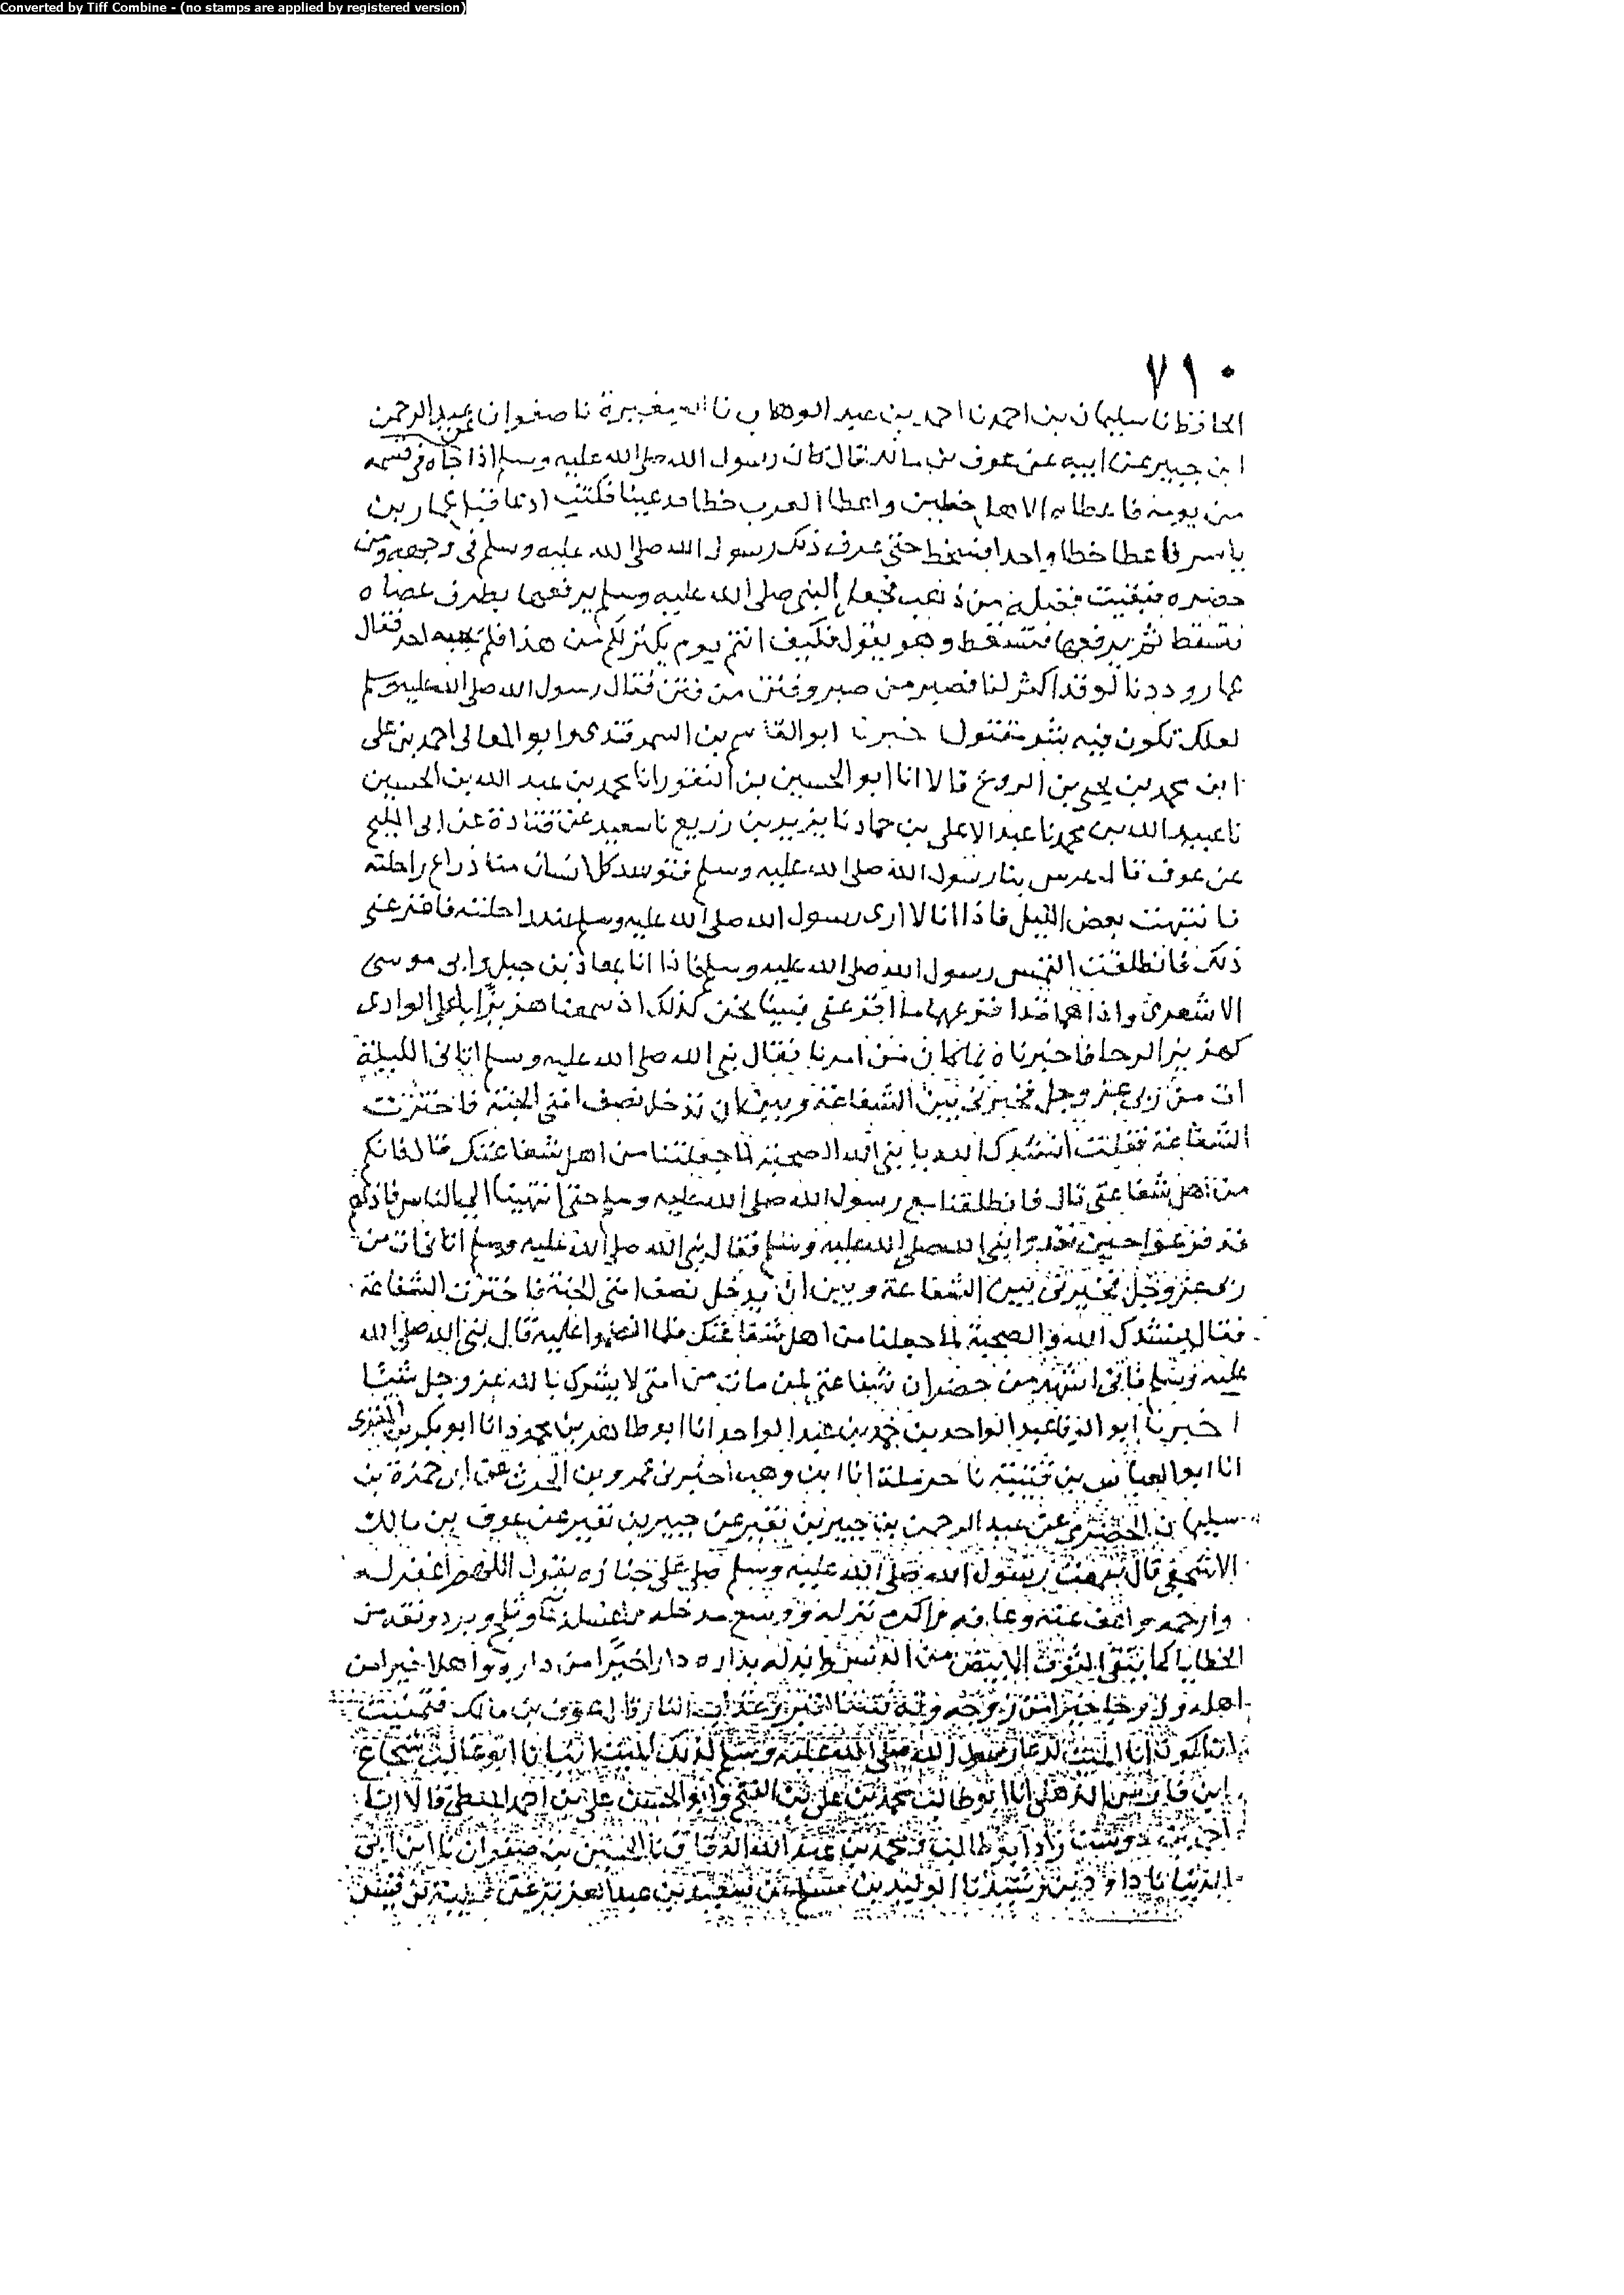 Converted by Tiff Combine - (no stamps are applied by registered version)
٧١٠
الحافظ نا سليمان بن احمد نا احمد بن عبد الوهاب نا المغيرة نا صفوان عن عبد الرحمن
ابن جبير عن ابيه عن عوف بن مالك قال كان رسول الله صلى الله عليه وسلم اذا جاه فى قسمه
من يومه فاعطا الاهل خطين واعطا العرب خطا فدعينا فكنت ادعا قبل عمار بن
ياسر فاعطا خطا واحدا فسخط حتى عرف ذلك رسول الله صلى الله عليه وسلم فى وجهه ومن
حضره فبقيت فضلة من ذهب فجعل النبى صلى الله عليه وسلم يرفعها بطرف عصاه
فتسقط ثم يرفعها فتسقط وهو يقول فكيف انتم يوم يكثر لكم من هذا فلم يجبه احد فقال
عمار وددنا لو قد اكثر لنا فصبر من صبر وفتن من فتن فقال رسول الله صلى الله عليه وسلم
لعلك تكون فيه ثم تقتول خبرنا ابو القاسم بن السمرقندى وابو المعالى احمد بن على
ابن محمد بن يحيى بن الروخ قالا انا ابو الحسين بن النقور انا محمد بن عبد الله بن الحسين
نا عبيد الله بن محمد نا عبد الاعلى بن حماد نا يزيد بن زريع نا سعيد عن قتادة عن ابى المليح
عن عوف قال عرس بنا رسول الله صلى الله عليه وسلم فتوسد كل انسان منا ذراع راحلته
فانتبهت بعض الليل فاذا انا لا ارى رسول الله صلى الله عليه وسلم عند راحلته فافزعنى
ذلك فانطلقت التمس رسول الله صلى الله عليه وسلم فاذا انا بمعاذ بن جبل وابى موسى
الاشعرى واذا هما قد افزعهما ما افزعنى فبينا نحن كذلك اذ سمعنا هزيزا باعلى الوادى
كهزيز الرحا فاخبرناه بما كان من امرنا فقال نبى الله صلى الله عليه وسلم اتانى الليلة
ات من ربى عز وجل فخيرنى بين الشفاعة وبين ان يدخل نصف امتى الجنة فاخترت
الشفاعة فقلت انشدك الله يا نبى الله الصحبة لما جعلتنا من اهل شفاعتك قال فانكم
من اهل شفاعتى قال فانطلقنا مع رسول الله صلى الله عليه وسلم حتى انتهينا الى الناس فاذا هم
قد فزعوا حين فقدوا نبى الله صلى الله عليه وسلم فقال نبى الله صلى الله عليه وسلم اتانى ات من
ربى عز وجل فخيرنى بين الشفاعة وبين ان يدخل نصف امتى الجنة فاخترت الشفاعة
فقالوا ننشدك الله والصحبة لما جعلتنا من اهل شفاعتك فلما انضموا عليه قال نبى الله صلى الله
عليه وسلم فانى اشهد من حضر ان شفاعتى لمن مات من امتى لا يشرك بالله عز وجل شيئا
اخبرنا ابو الوفا عبد الواحد بن حمد بن عبد الواحد انا ابو طاهر بن محمود انا ابو بكر بن المقرى
انا ابو العباس بن قتيبة نا حرملة انا ابن وهب اخبرنى عمرو بن الحرث عن ابى حمزة بن
سليمان الحضرمى عن عبد الرحمن بن جبير بن نفير عن جبير بن نفير عن عوف بن مالك
الاشجعى قال سمعت رسول الله صلى الله عليه وسلم صلى على جنازه يقول اللهم اغفر له
وارحمه واعف عنه وعافه واكرم نزله ووسع مدخله واغسله بماء وثلج وبرد ونقه من
الخطايا كما ينقى الثوب الابيض من الدنس وابدله بداره دارا خيرا من داره واهلا خيرا من
اهله وزوجا خيرا من زوجه وقه فتنة القبر وعذاب النار قال عوف بن مالك فتمنيت
ان اكون انا الميت لدعا رسول الله صلى الله عليه وسلم لذلك الميت انبانا ابو غالب شجاع
ابن فارس الذهلى انا ابو طالب محمد بن على بن الفتح وابو الحسن على بن احمد الملطى قالا انا
احمد بن دوست زاد ابو طالب ومحمد بن عبد الله الدقاق نا الحسين بن صفوان نا ابن ابى
الدنيا نا داود بن رشيد نا الوليد بن مسلم عن سعيد بن عبد العزيز عن